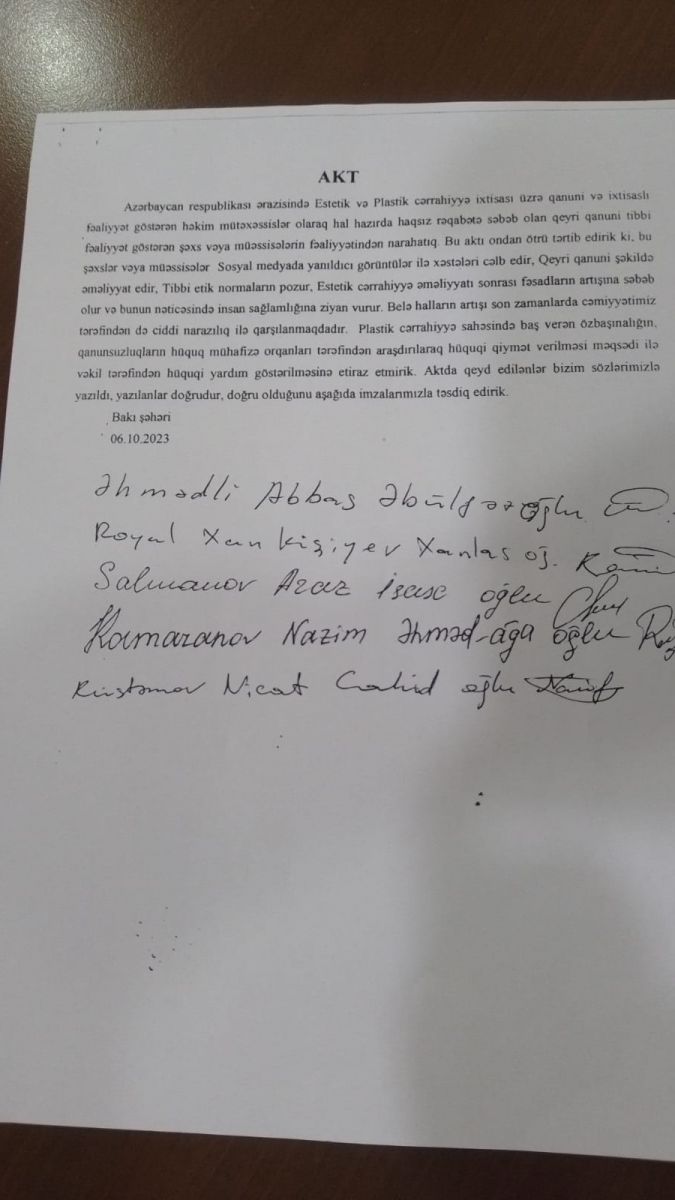 AKT
Azərbaycan respublikası ərazisində Estetik və Plastik cərrahiyyə ixtisası üzrə qanuni və ixtisaslı
fəaliyyət göstərən həkim mütəxəssislər olaraq hal hazırda haqsız rəqabətə səbəb olan qeyri qanuni tibbi
fəaliyyət göstərən şəxs vəya müəssisələrin fəaliyyətindən narahatıq. Bu aktı ondan ötrü tərtib edirik ki, bu
şəxslər vəya müəssisələr Sosyal medyada yanıldıcı görüntülər ilə xəstələri cəlb edir, Qeyri qanuni şəkildə
əməliyyat edir, Tibbi etik normaların pozur, Estetik cərrahiyyə əməliyyatı sonrası fəsadların artışına səbəb
olur və bunun nəticəsində insan sağlamlığına ziyan vurur. Belə halların artışı son zamanlarda cəmiyyətimiz
tərəfindən də ciddi narazılıq ilə qarşılanmaqdadır. Plastik cərrahiyyə sahəsində baş verən özbaşınalığın,
qanunsuzluqların hüquq mühafizə orqanları tərəfindən araşdırılaraq hüquqi qiymət verilməsi məqsədi ilə
vəkil tərəfindən hüquqi yardım göstərilməsinə etiraz etmirik. Aktda qeyd edilənlər bizim sözlərimizlə
yazıldı, yazılanlar doğrudur, doğru olduğunu aşağıda imzalarımızla təsdiq edirik.
Bakı şəhəri
06.10.2023
Əhmədli Abbas oğlu
Royal Xankişiyev Xanlar oğ.
Salmanov Araz oğlu
Kamaranov Nazim Əhməd-ağa oğlu
Rüstəmov Nicat Cahid oğlu